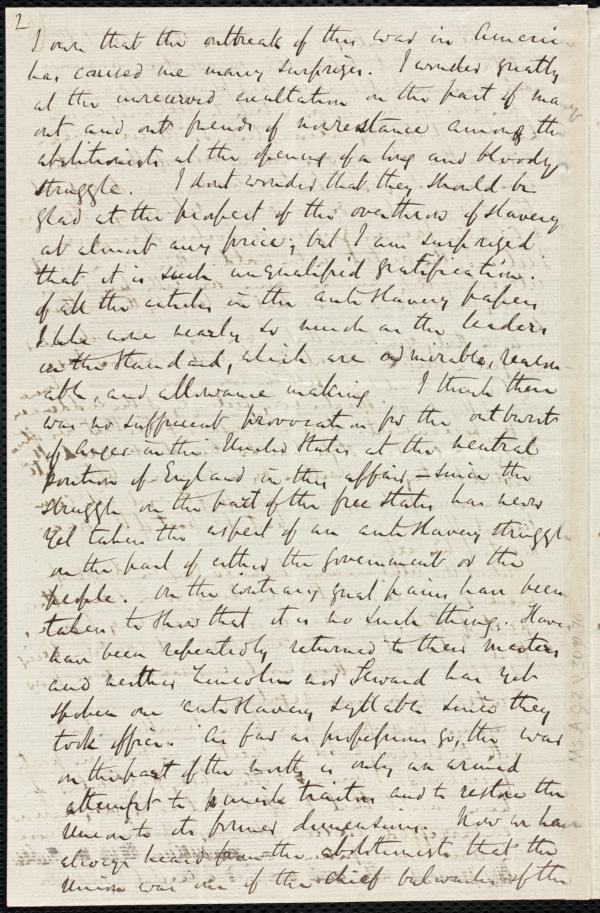 2
I own that the outbreak of this war in America
has caused me many surprizes. I wonder greatly
at the unreserved exultation on the part of many
out and out friends of nonresistance among the
abolitionists at the opening of a long and bloody
struggle. I dont wonder that they should be
glad at the prospect of the overthrow of slavery
at almost any price; but I am surprized
that it is such unqualified gratification.
Of all the articles in the anti slavery papers
I like none nearly so much as the leaders
in the Standard, which are admirable, reason
able, and allowance making. I think there
was no sufficient provocation for the outbursts
of anger in the United States at the neutral
position of England in this affair – since the
struggle on the part of the free states has never
yet taken the aspect of an anti slavery struggle
on the part of either the government or the
people. On the contrary great pains have been
taken to show that it is no such thing. Slaves
have been repeatedly returned to their masters
and neither Lincoln nor Seward has yet
spoken one anti slavery syllable since they
took office. As far as professions go, the war
on the part of the north is only an armed
attempt to punish traitors and to restore the
Union to its former dimensions. Now we have
always heard from the abolitionists that the
Union was one of the chief bulwarks of the
Ms. A. 9.2 v. 30 p. 70